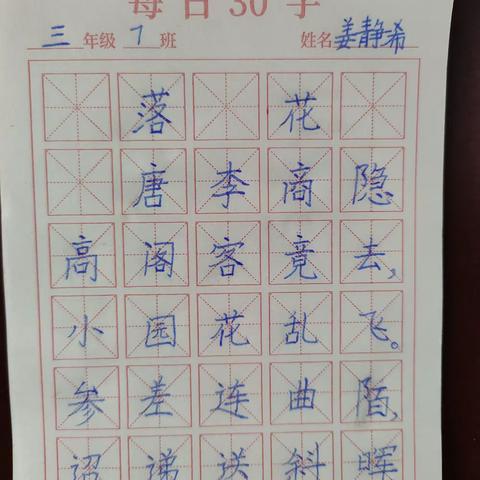 每日30字
三年级7班 姓名姜静希
落花
唐李商隐
高阁客竟去,
小园花乱飞。
参差连曲陌,
迢递送斜晖